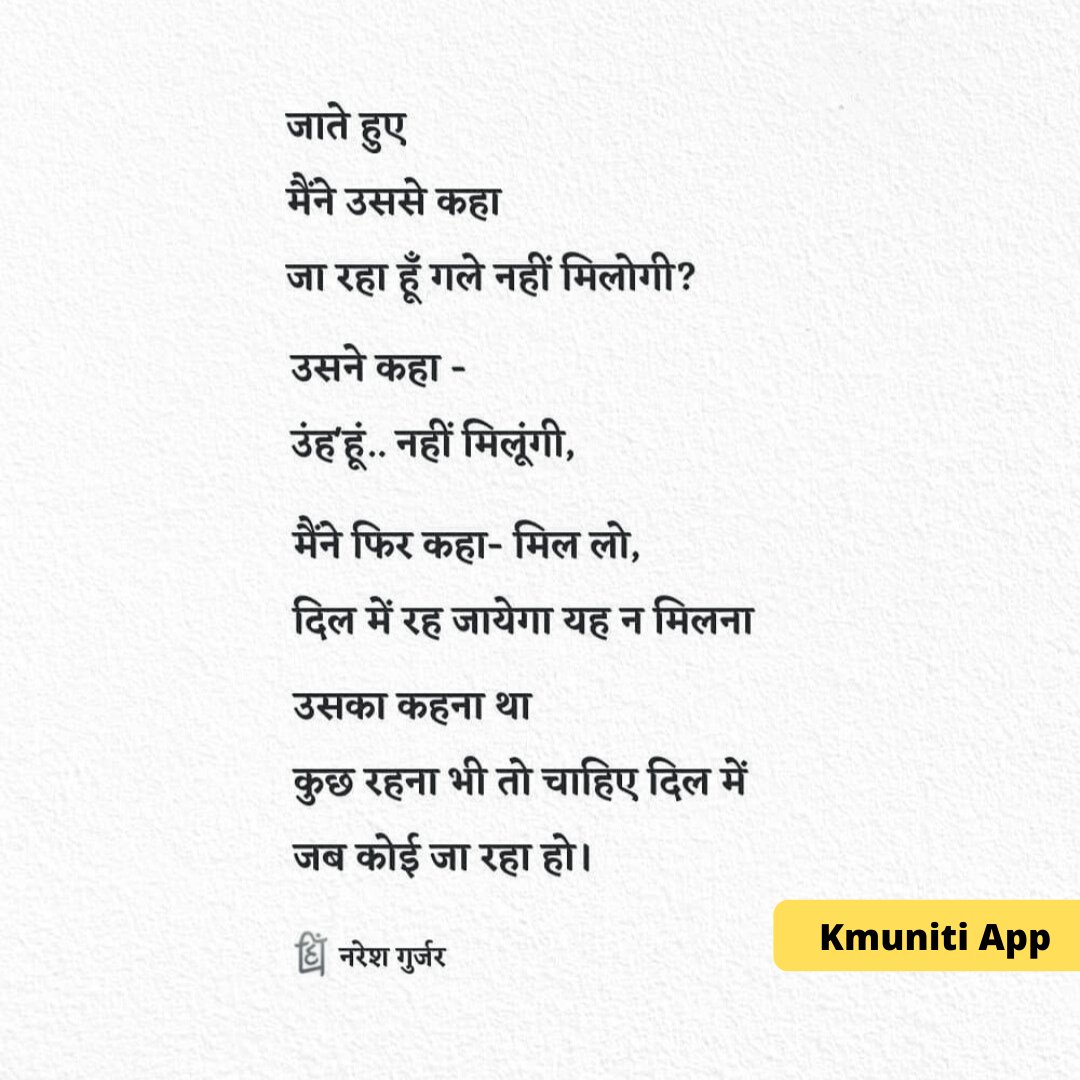 जाते हुए
मैंने उससे कहा
जा रहा हूँ गले नहीं मिलोगी?
उसने कहा -
उंह'हूं.. नहीं मिलूंगी,
मैंने फिर कहा- मिल लो,
दिल में रह जायेगा यह न मिलना
उसका कहना था
कुछ रहना भी तो चाहिए दिल में
जब कोई जा रहा हो।
नरेश गुर्जर
Kmuniti App